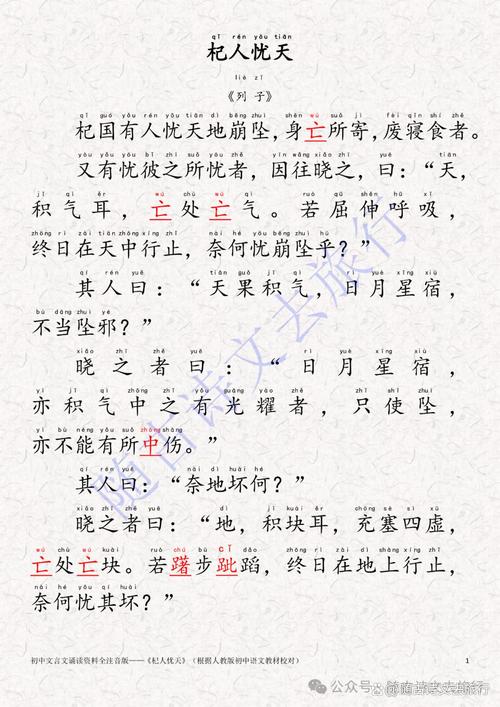 qǐ rén yōu tiān
杞人忧天
liè zǐ
《列子》
qǐ guó yǒu rén yōu tiān dì bēng zhuì shēn wú suǒ jì fèi qǐn shí zhě
杞国有人忧天地崩坠，身亡所寄，废寝食者。
yòu yǒu yōu bǐ zhī suǒ yōu zhě yīn wǎng xiǎo zhī yuē tiān
又有忧彼之所忧者，因往晓之，曰：“天，
jī qì ěr wú chù wú qì ruò qū shēn hū xī
积气耳，亡处亡气。若屈伸呼吸，
zhōng rì zài tiān zhōng xíng zhǐ nài hé yōu bēng zhuì hū
终日在天中行止，奈何忧崩坠乎？”
qí rén yuē tiān guǒ jī qì rì yuè xīng xiù
其人曰：“天果积气，日月星宿，
bù dāng zhuì yé
不当坠邪？”
xiǎo zhī zhě yuē rì yuè xīng xiù
晓之者曰：“日月星宿，
yì jī qì zhōng zhī yǒu guāng yào zhě zhǐ shǐ zhuì
亦积气中之有光耀者，只使坠，
yì bù néng yǒu suǒ zhòng shāng
亦不能有所中伤。”
qí rén yuē nài dì huài hé
其人曰：“奈地坏何？”
xiǎo zhī zhě yuē dì jī kuài ěr chōng sè sì xū
晓之者曰：“地，积块耳，充塞四虚，
wú chù wú kuài ruò chú bù cǐ dǎo zhōng rì zài dì shàng xíng zhǐ
亡处亡块。若躇步跐蹈，终日在地上行止，
nài hé yōu qí huài
奈何忧其坏？”
随古诗文去旅行
初中文言文诵读资料全注音版——《杞人忧天》（根据人教版初中语文教材校对） 1
公众号
随古诗文去旅行